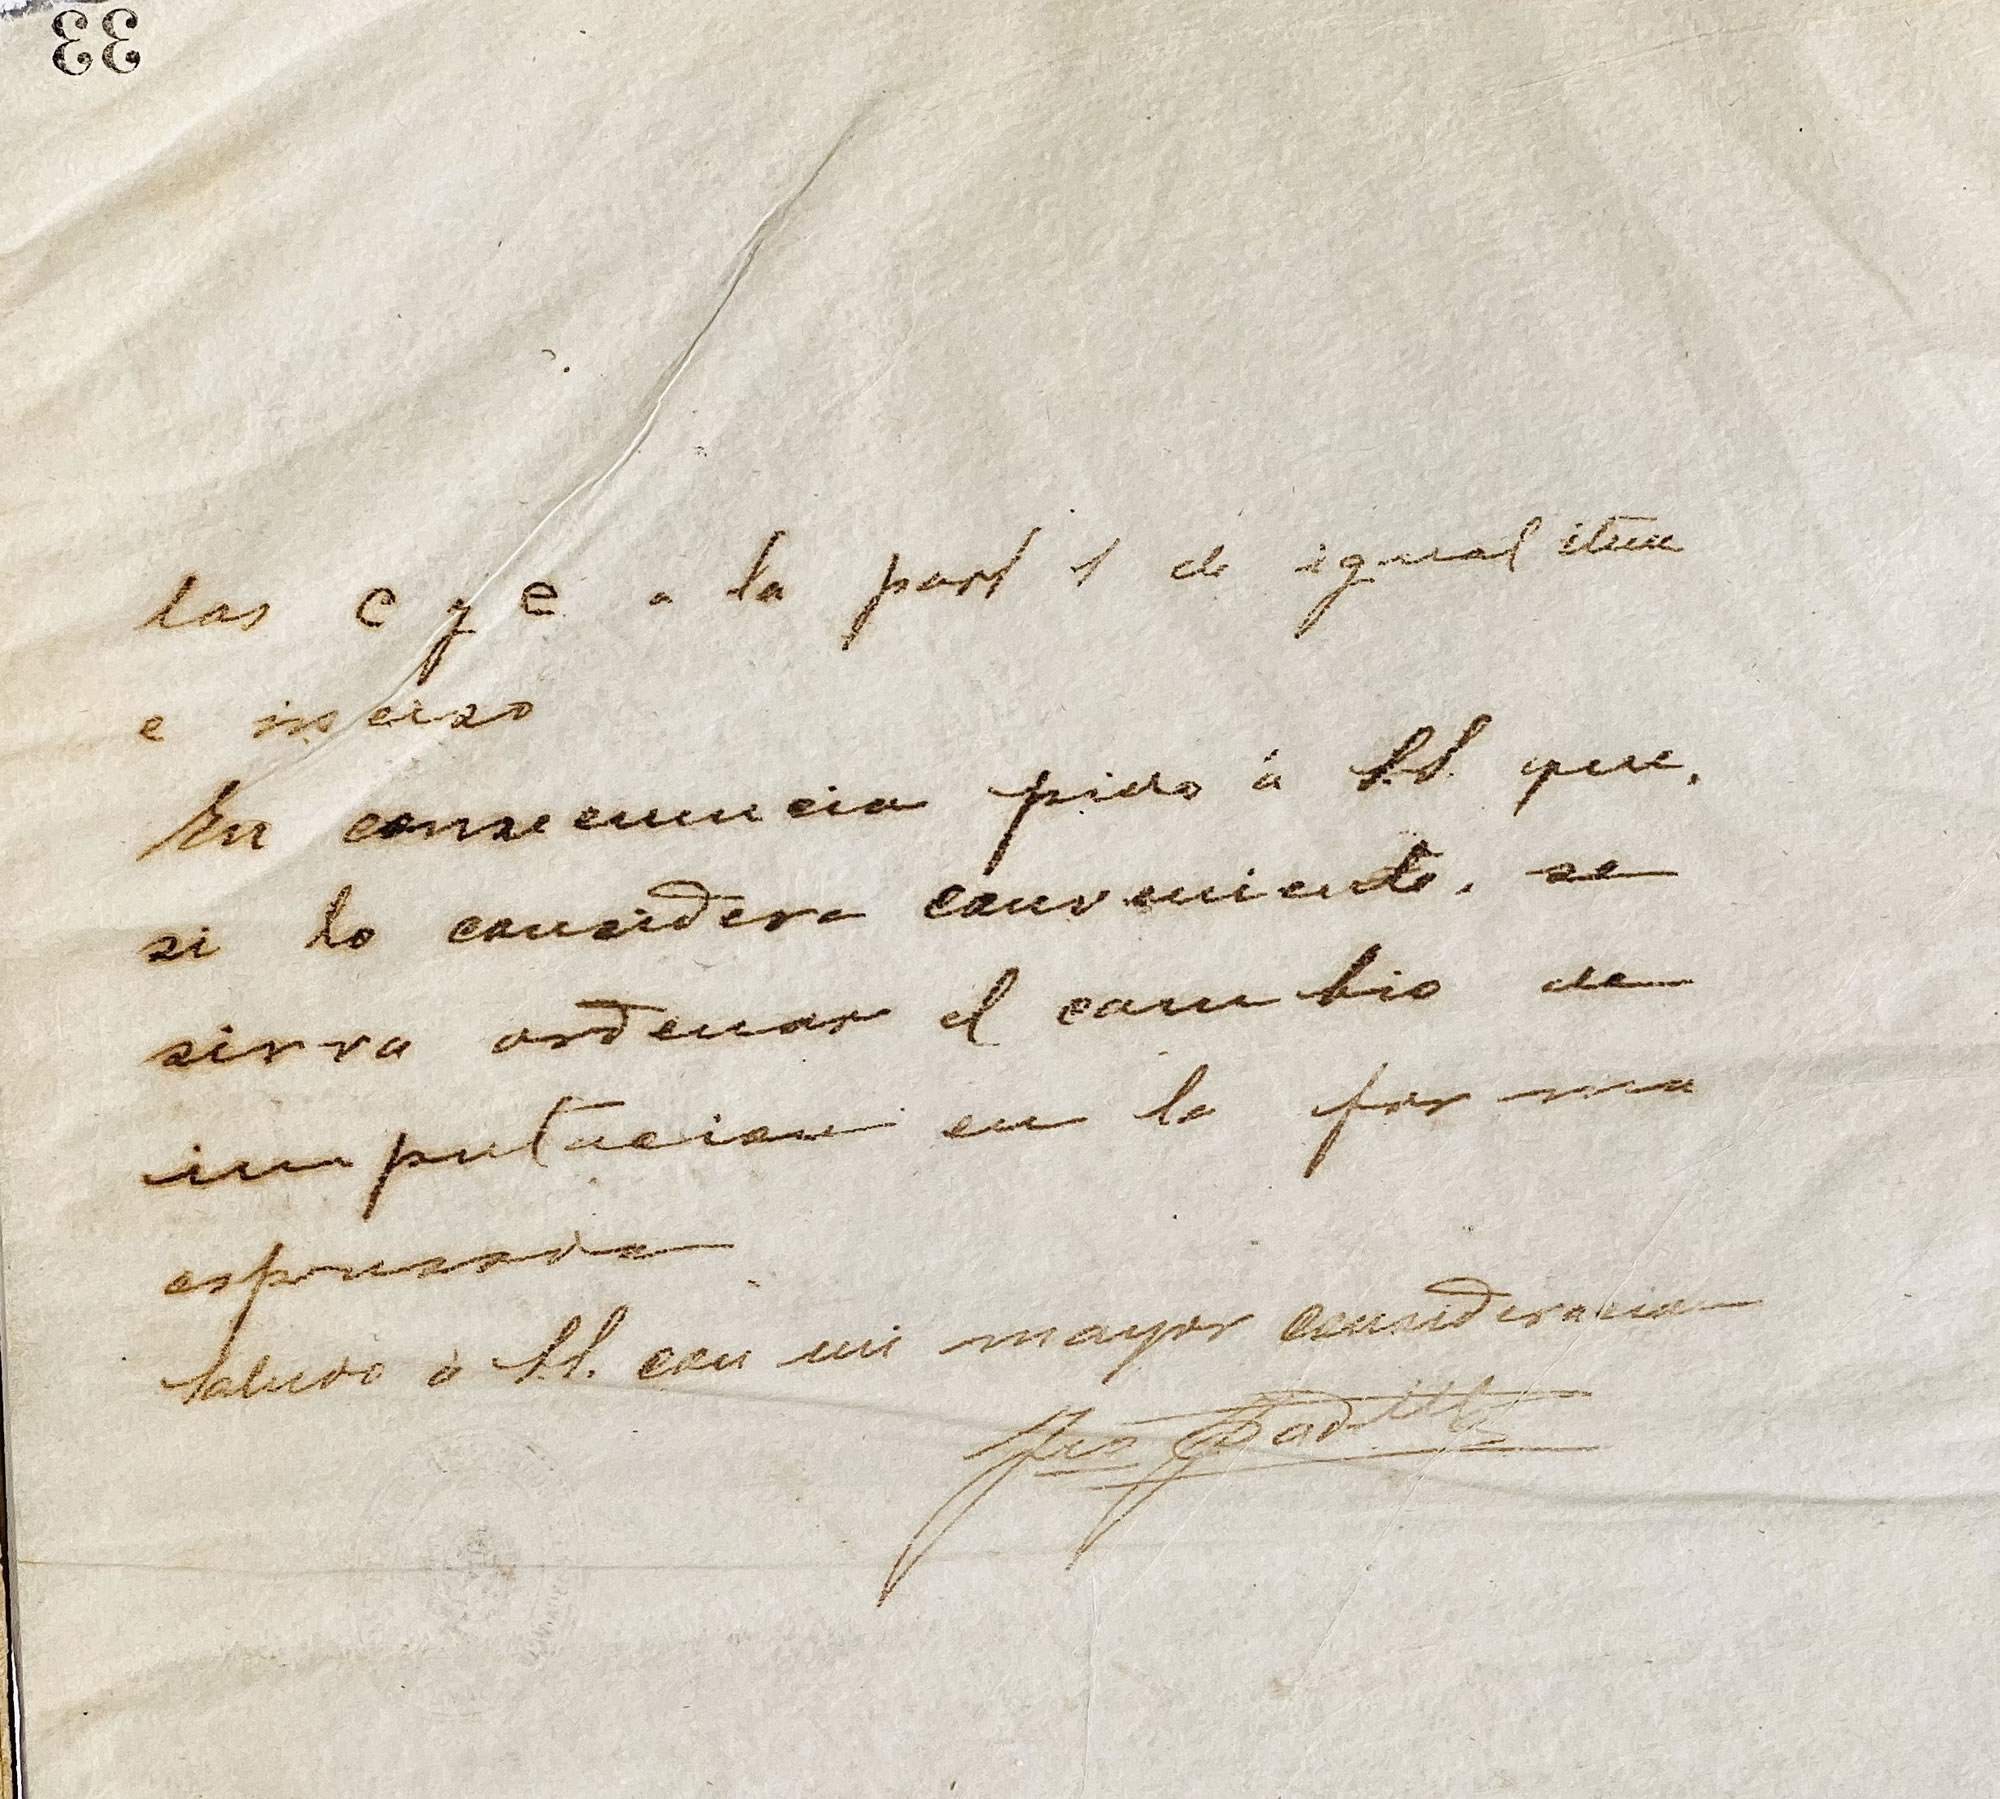 33
las c y e a la part 1 de igual item
e inciso
En consecuencia pido á S.S. que,
si lo considera conveniente, se
sirva ordenar el cambio de
imputacion en la forma
espresada
Saludo á S.S. con mi mayor consideracion